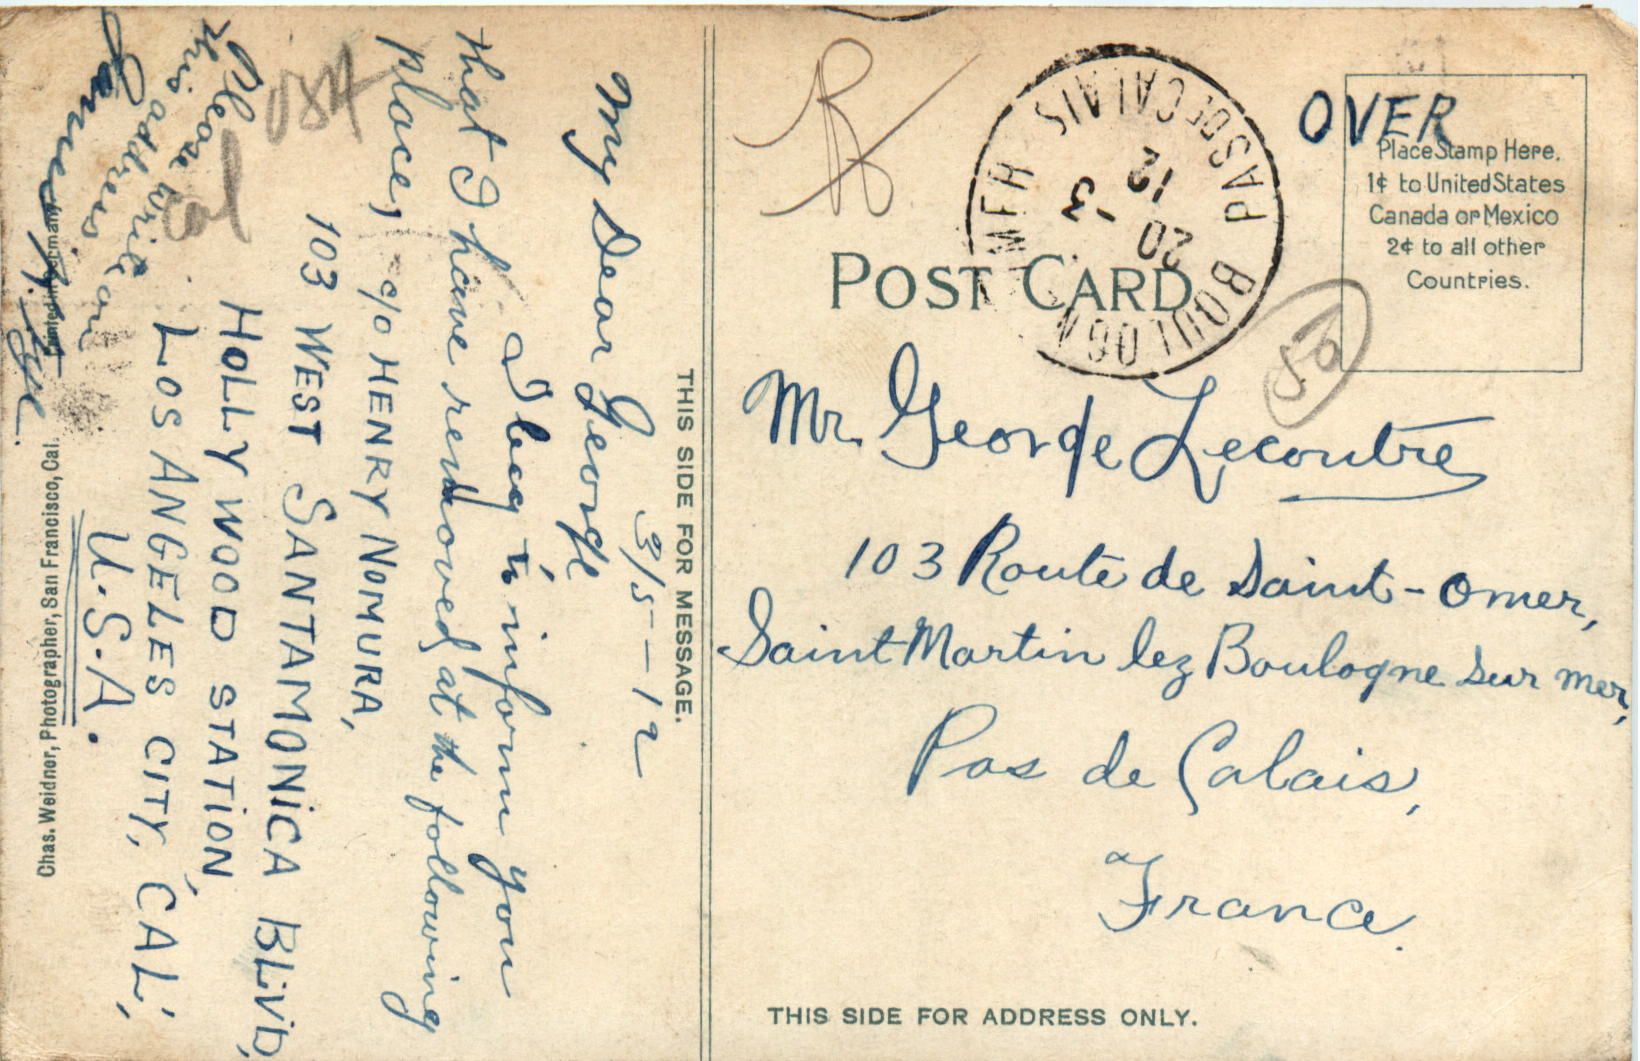 THIS SIDE FOR MESSAGE.
3/5-12
My Dear George
I beg to inform you
that I have removed at the following
place, c/o HENRY NOMURA,
103 WEST SANTAMONICA BLIVD,
HOLLY WOOD STATION,
LOS ANGELES CITY, CAL.,
U.S.A.
Please Write
this address
James
USA
Cal
Chas. Weidner, Photographer, San Francisco, Cal.
Printed in Germany
OVER
Place Stamp Here.
1¢ to United States
Canada or Mexico
2¢ to all other
Countries.
POST CARD
BOULOGNE S MER
PAS DE CALAIS
12
20 -3
12
50
Mr. George Lecoutre
103 Route de Saint-Omer,
Saint Martin lez Boulogne sur mer,
Pas de Calais,
France.
THIS SIDE FOR ADDRESS ONLY.